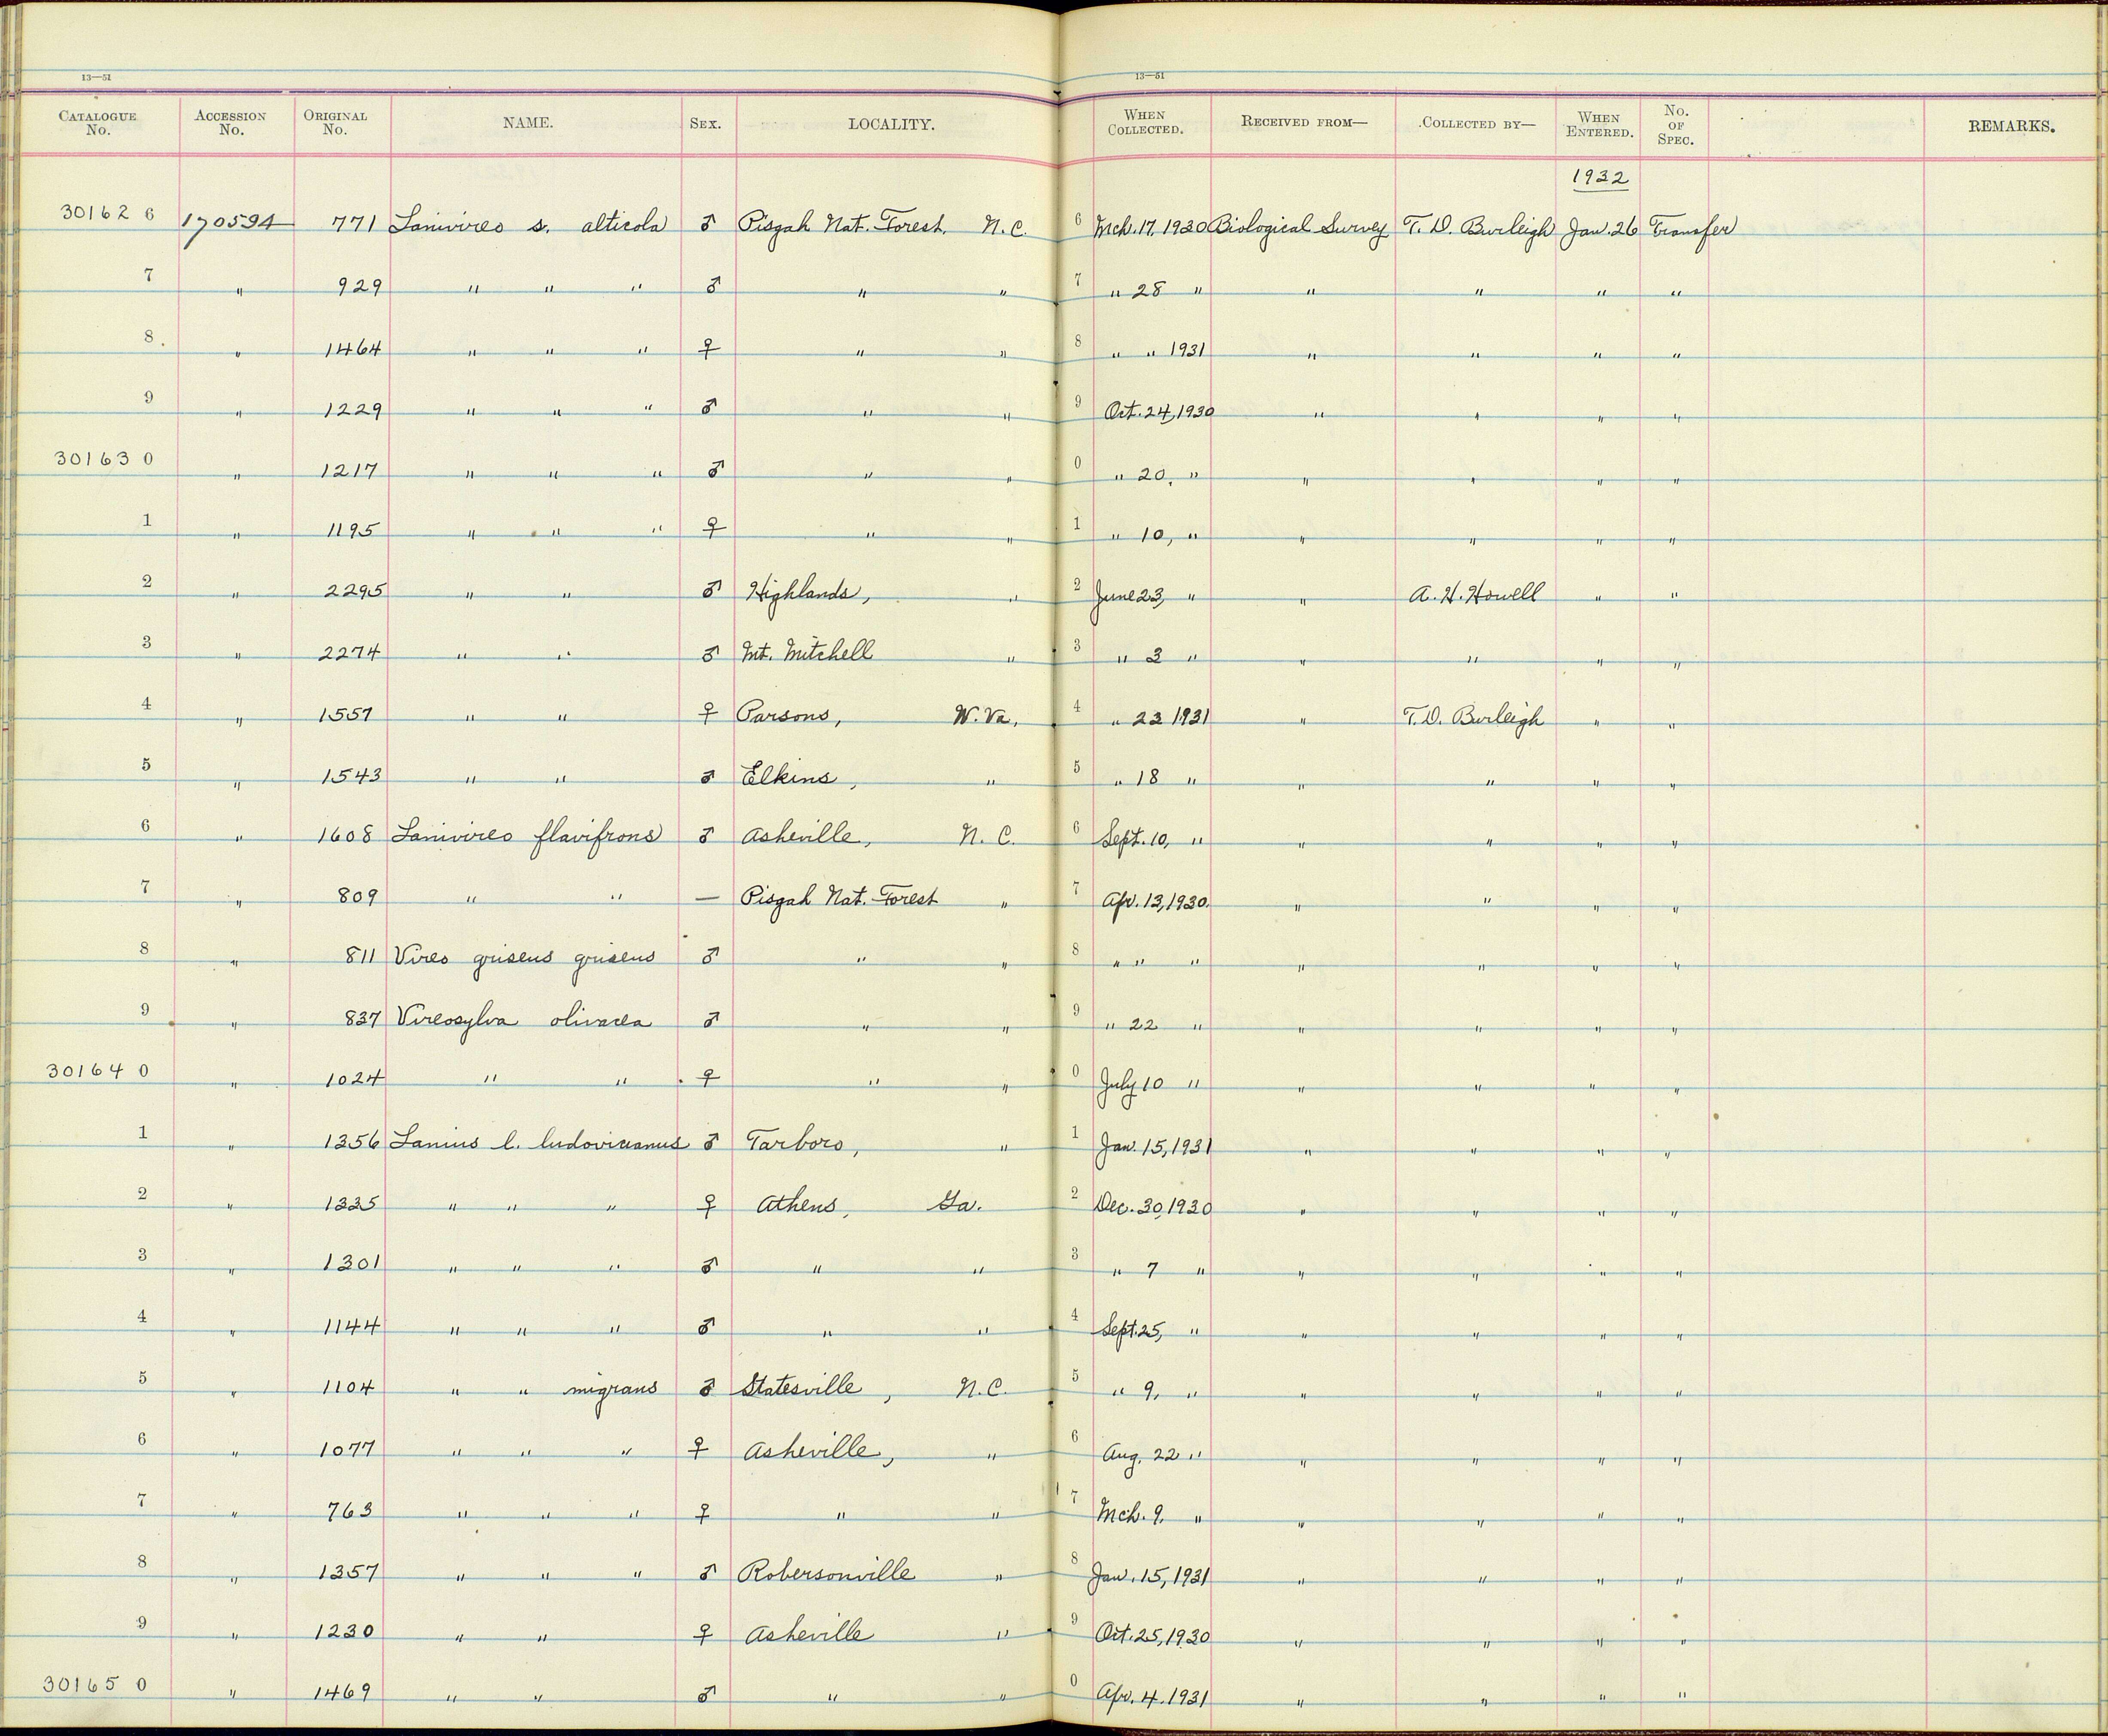 13—51 13—51
CATALOGUE No. ACCESSION No. ORIGINAL No. NAME. SEX. LOCALITY. WHEN COLLECTED. RECEIVED FROM— COLLECTED BY— WHEN ENTERED. No. OF SPEC. REMARKS.
1932
301626 170594 771 Lanivireo s. alticola ♂ Pisgah Nat. Forest, N.C. 6 Mch. 17, 1930 Biological Survey T. D. Burleigh Jan. 26 Transfer
7 " 929 " " " ♂ " " 7 " 28 " " " " "
8 " 1464 " " " ♀ " " 8 " " 1931 " " " "
9 " 1229 " " " ♂ " " 9 Oct. 24, 1930 " " " "
301630 " 1217 " " " ♂ " " 0 " 20, " " " " "
1 " 1195 " " " ♀ " " 1 " 10, " " " " "
2 " 2295 " " ♂ Highlands, " 2 June 23, " " A. H. Howell " "
3 " 2274 " " ♂ Mt. Mitchell " 3 " 3 " " " " "
4 " 1557 " " ♀ Parsons, W. Va. 4 " 23 1931 " T. D. Burleigh " "
5 " 1543 " " ♂ Elkins, " 5 " 18 " " " " "
6 " 1608 Lanivireo flavifrons ♂ Asheville, N. C. 6 Sept. 10, " " " " "
7 " 809 " " — Pisgah Nat. Forest " 7 Apr. 13, 1930. " " " "
8 " 811 Vireo griseus griseus ♂ " " 8 " " " " " " "
9 " 837 Vireosylva olivacea ♂ " " 9 " 22 " " " " "
301640 " 1024 " " ♀ " " 0 July 10 " " " " "
1 " 1356 Lanius l. ludovicianus ♂ Tarboro, " 1 Jan. 15, 1931 " " " "
2 " 1335 " " " ♀ Athens, Ga. 2 Dec. 30, 1930 " " " "
3 " 1301 " " " ♂ " " 3 " 7 " " " " "
4 " 1144 " " " ♂ " " 4 Sept. 25, " " " " "
5 " 1104 " " migrans ♂ Statesville, N.C. 5 " 9, " " " " "
6 " 1077 " " " ♀ Asheville, " 6 Aug. 22 " " " " "
7 " 763 " " " ♀ " " 7 Mch. 9, " " " " "
8 " 1357 " " " ♂ Robersonville " 8 Jan. 15, 1931 " " " "
9 " 1230 " " ♀ Asheville " 9 Oct. 25, 1930 " " " "
301650 " 1469 " " ♂ " " 0 Apr. 4. 1931 " " " "